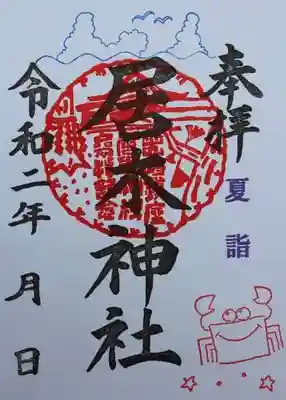 奉拝
夏詣
尾木神社
令和二年 月 日